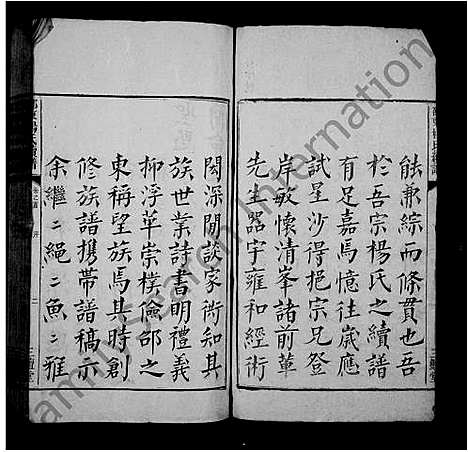 能兼綜而條貫也吾
於吾宗楊氏之續譜
有足嘉焉憶往歲應
試星沙得挹宗兄登
岸敏懷清峯諸前輩
先生器宇雍和經術
閎深閒談家術知其
族世業詩書明禮義
抑浮華崇樸儉邵之
東稱望族焉其時創
修族譜攜帶譜稿示
余繼〻繩〻魚〻雅